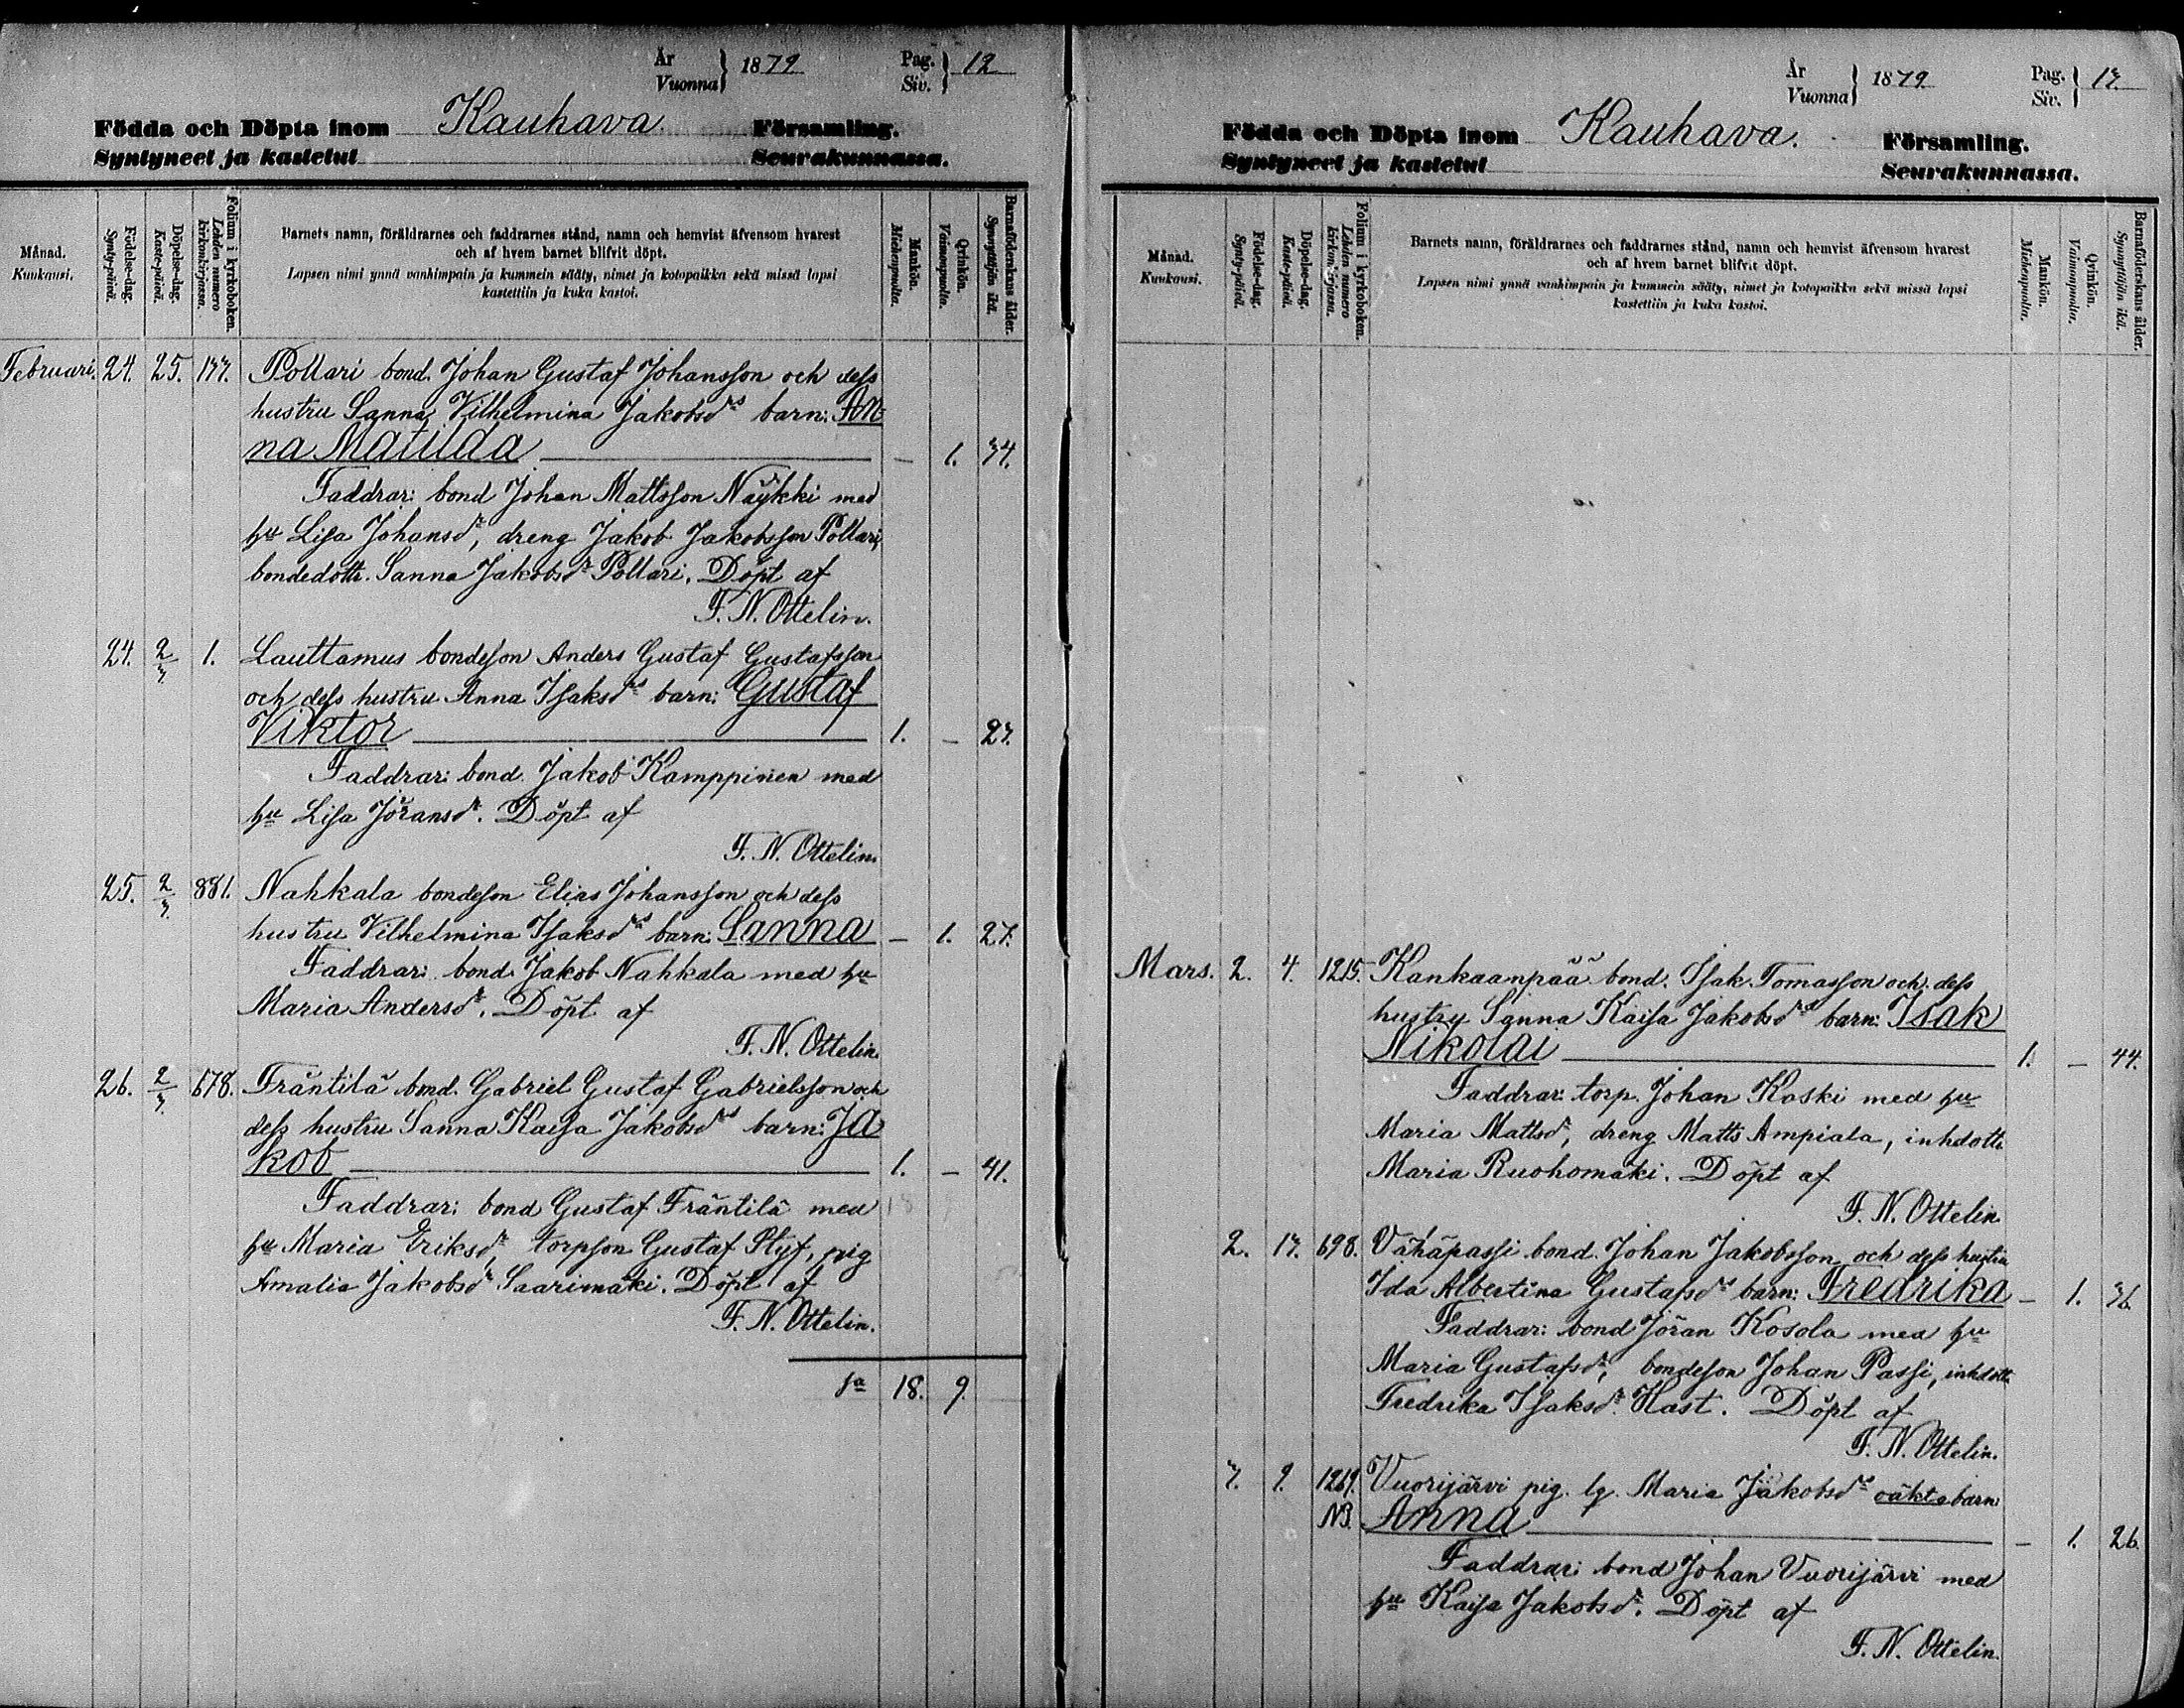 År
Vuonna } 1879. Pag.
Siv. } 12
Födda och Döpta inom Kauhava. Församling.
Syntyneet ja kastetut Seurakunnassa.
Månad.
Kuukausi.
Födelse-dag.
Synty-päivä.
Döpelse-dag.
Kaste-päivä.
Folium i kyrkoboken.
Lehden numero
kirkonkirjassa.
Barnets namn, föräldrarnes och faddrarnes stånd, namn och hemvist äfvensom hvarest
och af hvem barnet blifvit döpt.
Lapsen nimi ynnä vanhimpain ja kummein sääty, nimet ja kotopaikka sekä missä lapsi
kastettiin ja kuka kastoi.
Mankön.
Miehenpuolta.
Qvinkön.
Vaimonpuolta.
Barnaföderskans ålder.
Synnyttäjän ikä.
Februari. 24. 25. 133. Pollari bond. Johan Gustaf Johansson och dess
hustru Sanna Vilhelmina Jakobsdrs barn: An-
na Matilda — 1. 34.
Faddrar: bond Johan Mattsson Näykki med
hu Lisa Johansdr, dreng Jakob Jakobsson Pollari,
bondedottr. Sanna Jakobsdr Pollari. Döpt af
F. N. Ottelin.
24. 2/3. 1. Lauttamus bondeson Anders Gustaf Gustafsson
och dess hustru Anna Isaksdrs barn: Gustaf
Viktor 1. — 23.
Faddrar: bond. Jakob Kamppinen med
hu Lisa Jöransdr. Döpt af
F. N. Ottelin.
25. 2/3. 881. Nahkala bondeson Elias Johansson och dess
hustru Vilhelmina Isaksdrs barn: Sanna — 1. 27.
Faddrar: bond. Jakob Nahkala med hu
Maria Andersdr. Döpt af
F. N. Ottelin.
26. 2/3. 678. Fräntilä bond. Gabriel Gustaf Gabrielsson och
dess hustru Sanna Kaisa Jakobsdrs barn: Ja
kob 1. — 41.
Faddrar: bond Gustaf Fräntilä med
hu Maria Eriksdr, torpson Gustaf Styf, pig
Amalia Jakobsdr Saarimäki. Döpt af
F. N. Ottelin.
Sa 18. 9.
År
Vuonna } 1879. Pag.
Siv. } 13.
Födda och Döpta inom Kauhava. Församling.
Syntyneet ja kastetut Seurakunnassa.
Månad.
Kuukausi.
Födelse-dag.
Synty-päivä.
Döpelse-dag.
Kaste-päivä.
Folium i kyrkoboken.
Lehden numero
kirkonkirjassa.
Barnets namn, föräldrarnes och faddrarnes stånd, namn och hemvist äfvensom hvarest
och af hvem barnet blifvit döpt.
Lapsen nimi ynnä vanhimpain ja kummein sääty, nimet ja kotopaikka sekä missä lapsi
kastettiin ja kuka kastoi.
Mankön.
Miehenpuola.
Qvinkön.
Vaimonpuola.
Barnaföderskans ålder.
Synnyttäjän ikä.
Mars. 2. 4. 1215. Kankaanpää bond. Isak Tomasson och dess
hustru Sanna Kaisa Jakobsdrs barn: Isak
Nikolai 1. — 44.
Faddrar: torp. Johan Koski med hu
Maria Mattsdr, dreng Matts Ampiala, inhdottr.
Maria Ruohomäki. Döpt af
F. N. Ottelin.
2. 13. 698. Vähäpassi bond. Johan Jakobsson och dess hustru
Ida Albertina Gustafsdrs barn: Fredrika — 1. 36.
Faddrar: bond Jöran Kosola med hu
Maria Gustafsdr, bondeson Johan Passi, inhdottr.
Fredrika Isaksdr Hast. Döpt af
F. N. Ottelin.
3. 9. 1269. Vuorijärvi pig. lg. Maria Jakobsdrs oäkta barn
NB. Anna — 1. 26.
Faddrar: bond Johan Vuorijärvi med
hu Kaisa Jakobsdr. Döpt af
F. N. Ottelin.